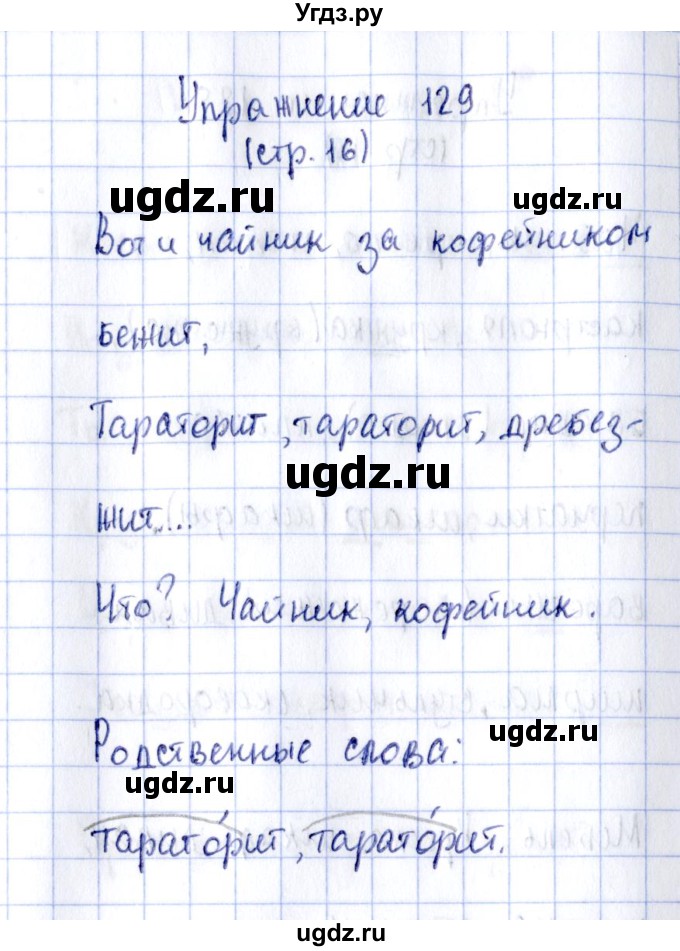 Угдз.ру
Упражнение 129
(стр. 16)
ugdz.ru
ugdz.ru
Вот и чайник за кофейником
бежит,
ugdz.ru
ugdz.ru
Тараторит, тараторит, дребез-
ugdz.ru
жит...
Что? Чайник, кофейник.
ugdz.ru
Родственные слова:
ugdz.ru
тарато́рит, тарато́рит.
ugdz.ru